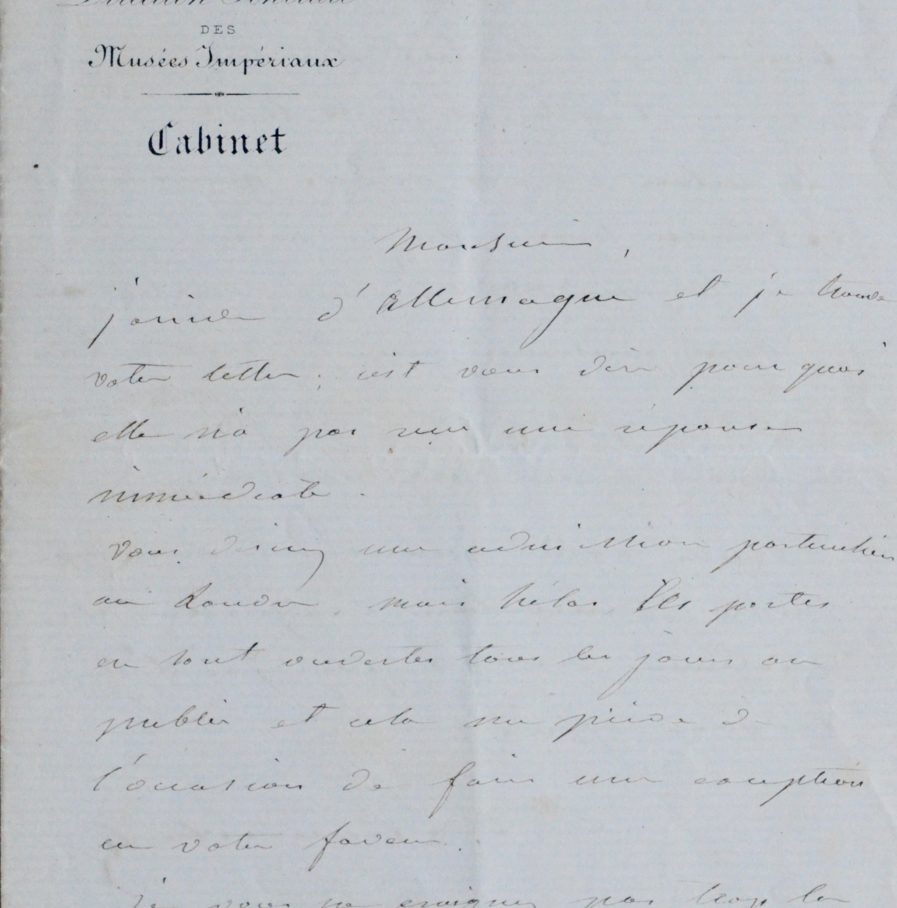 Direction Générale
DES
Musées Impériaux
Cabinet
Monsieur,
j'arrive d'Allemagne et je trouve
votre lettre; c'est vous dire pourquoi
elle n'a pas reçu une réponse
immédiate.
Vous désirez une admission particulière
au Louvre, mais hélas les portes
en sont ouvertes tous les jours au
public et cela me prive de
l'occasion de faire une exception
en votre faveur.
Je vous ne pas trop